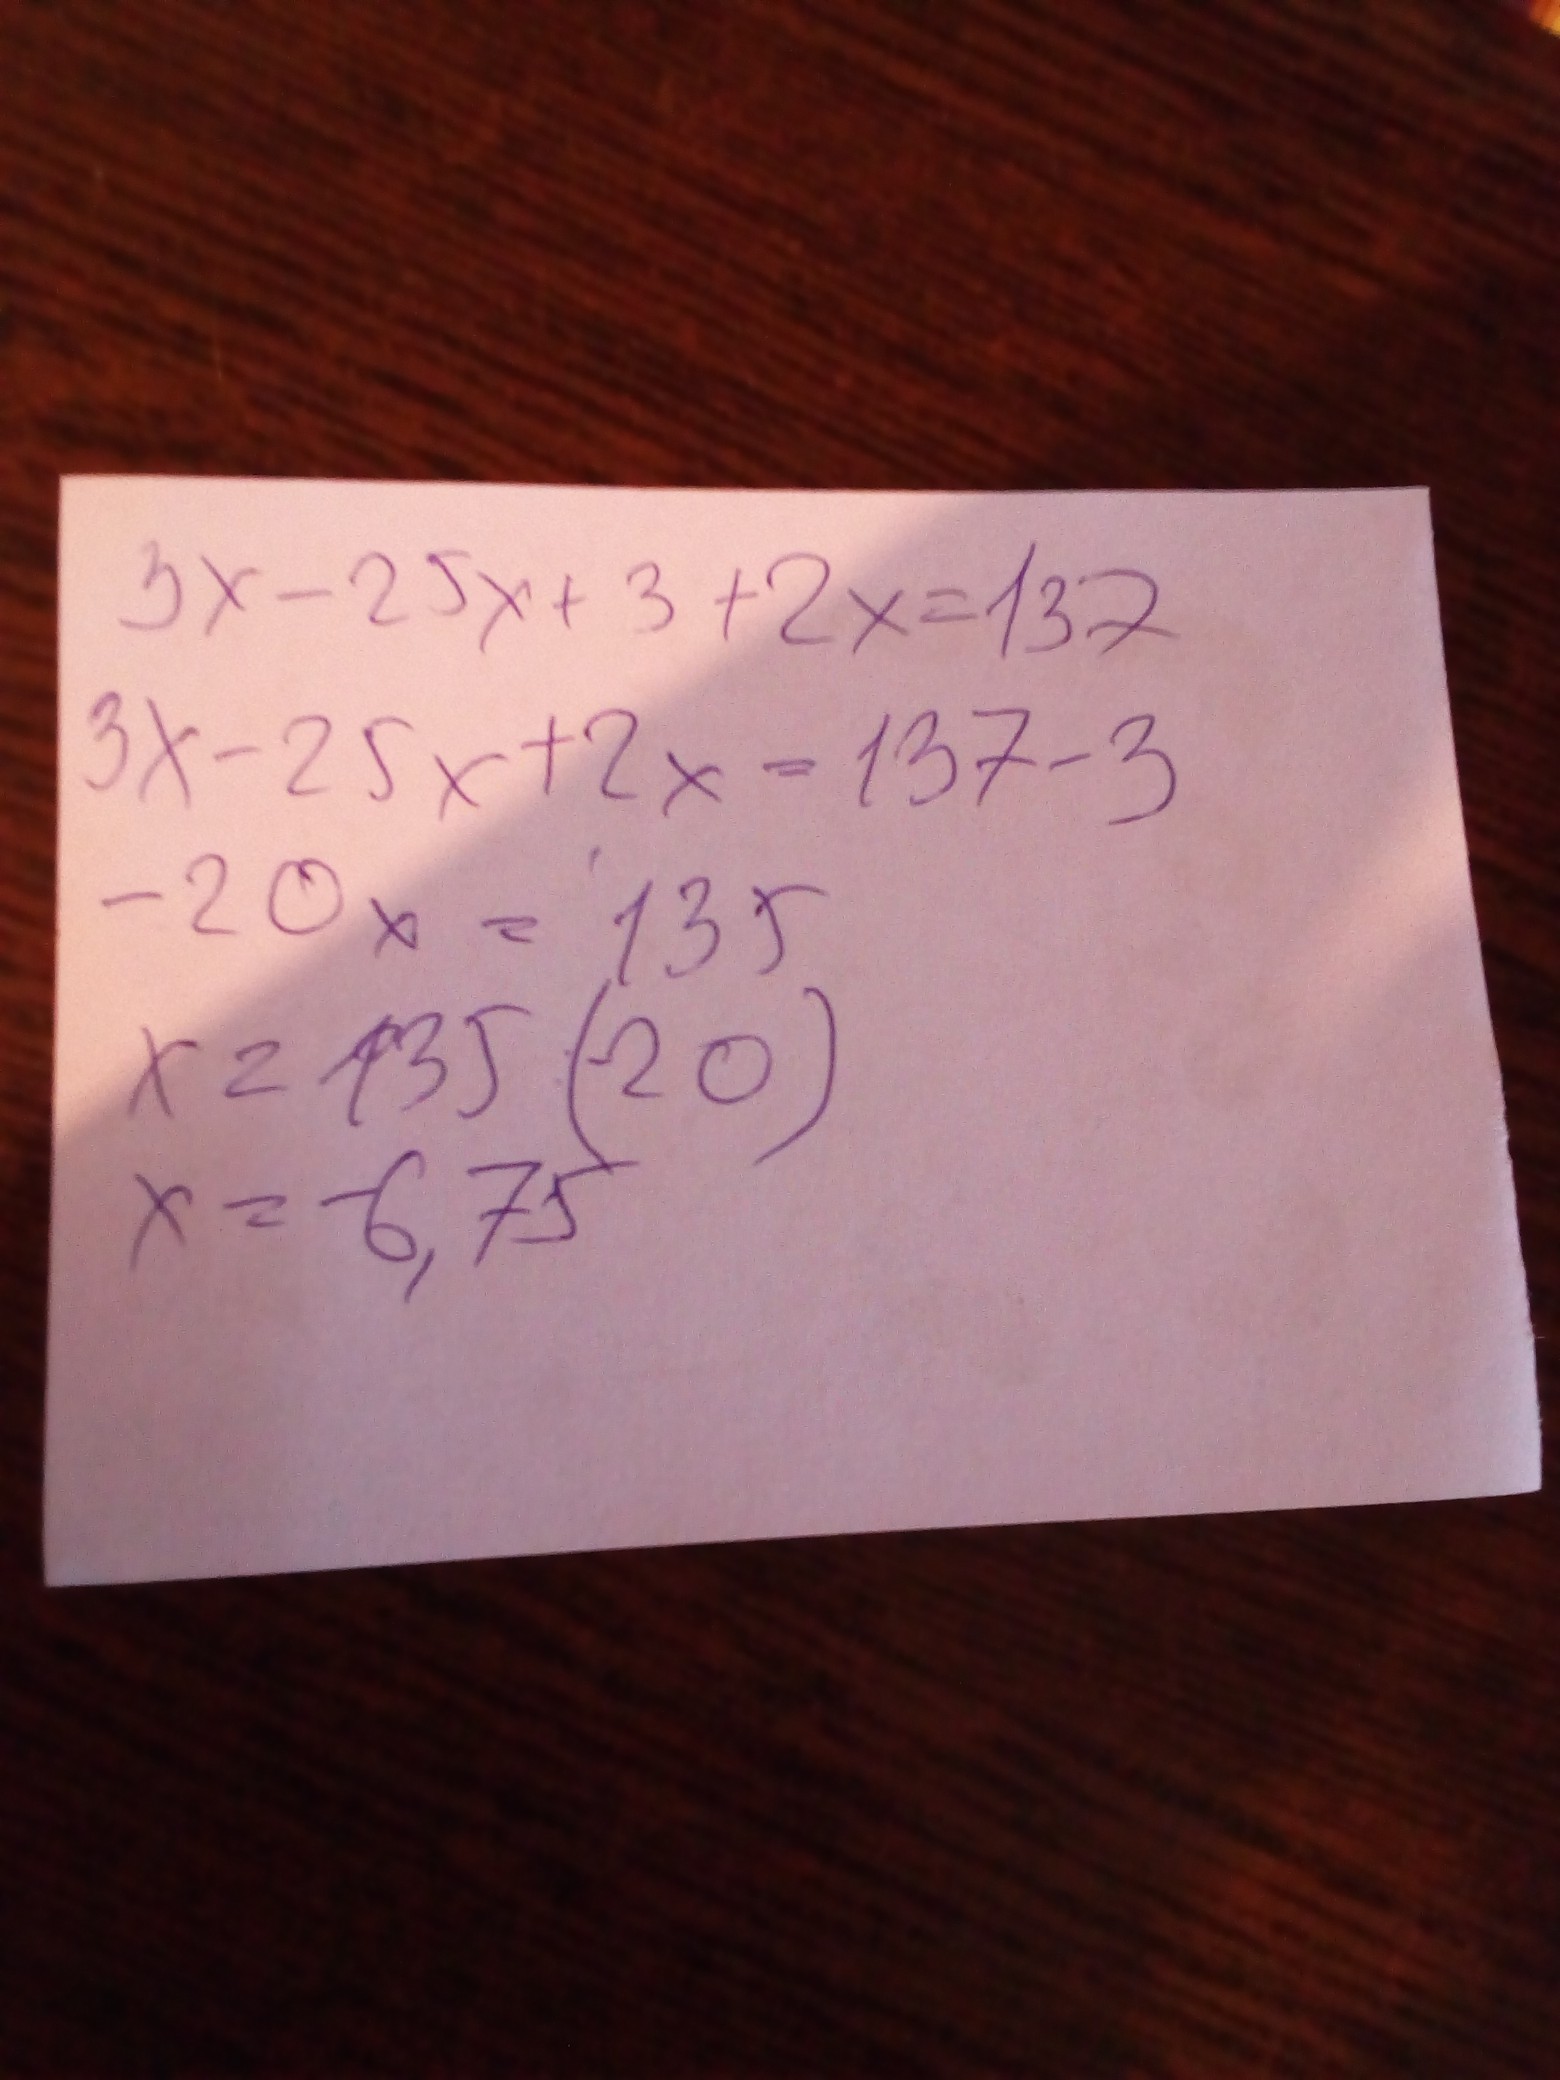 3x-25x+3+2x=137
3x-25x+2x=137-3
-20x=135
x=135(-20)
x=-6,75